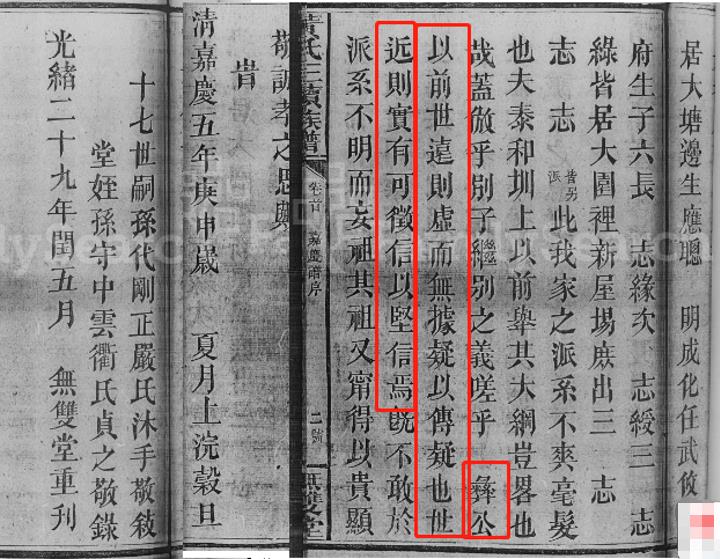 居大塘邊生應聰 明成化任武攸
府生子六長 志緣次 志綬三 志
綠皆居大圍裡新屋場庶出三 志
志 志 昔另派 此我家之派系不爽毫髮
也夫泰和圳上以前舉其大綱豈畧也
哉蓋倣乎別子繼別之義嗟乎 彝公
以前世遠則虛而無據疑以傳疑也世
近則實有可徵信以堅信焉旣不敢於
派系不明而妄祖其祖又甯得以貴顯
黄氏三續族譜 卷首 嘉慶譜序 二號 無雙堂
敬訓孝之思興
旹
清嘉慶五年庚申歲 夏月上浣穀旦
十七世嗣孫代剛正嚴氏沐手敬敍
堂姪孫守中雲衢氏貞之敬錄
光緒二十九年閏五月 無雙堂重刊